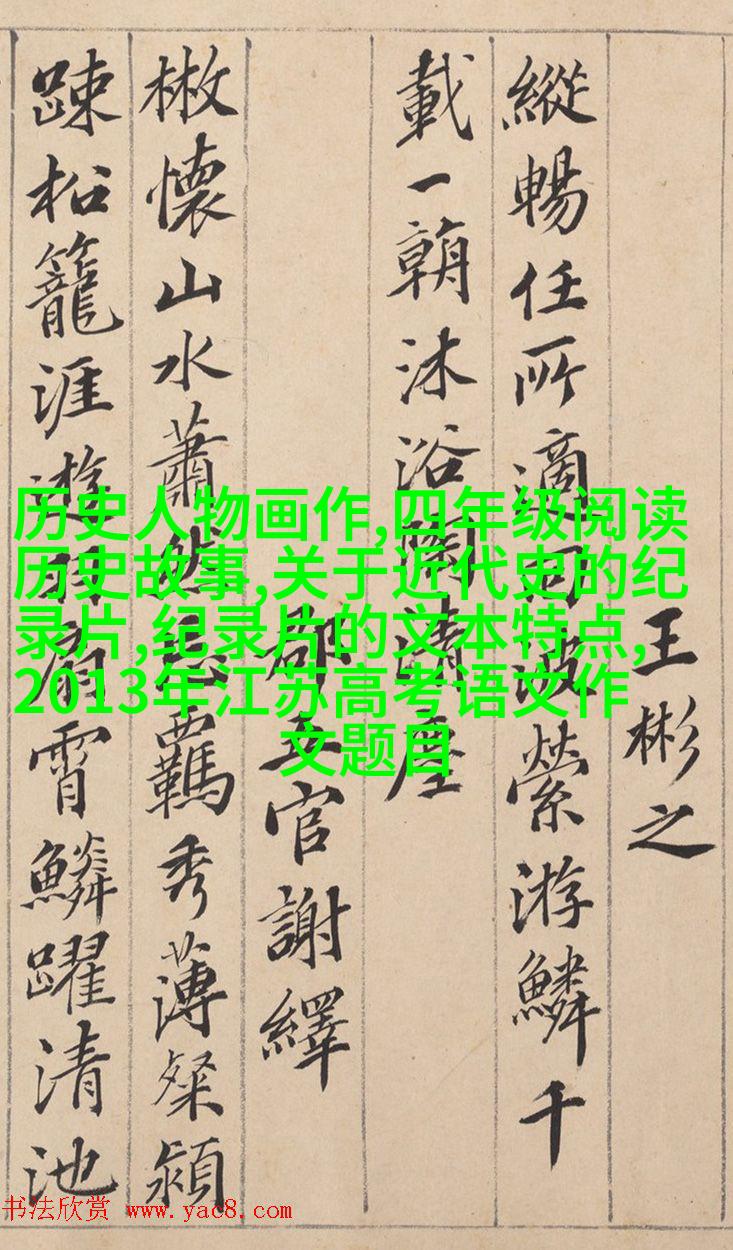 王彬之
縱暢任所適回波縈游鱗千
載一朝沐浴陶清塵
郡五官謝繹
懷山水蕭然忘羈秀薄粲穎
踈松籠涯遊羽扇霄鱗躍清池
历史人物画作,四年级阅读
历史故事,关于近代史的纪
录片,纪录片的文本特点,
2013年江苏高考语文作
文题目
书法欣赏 www.yac8.com